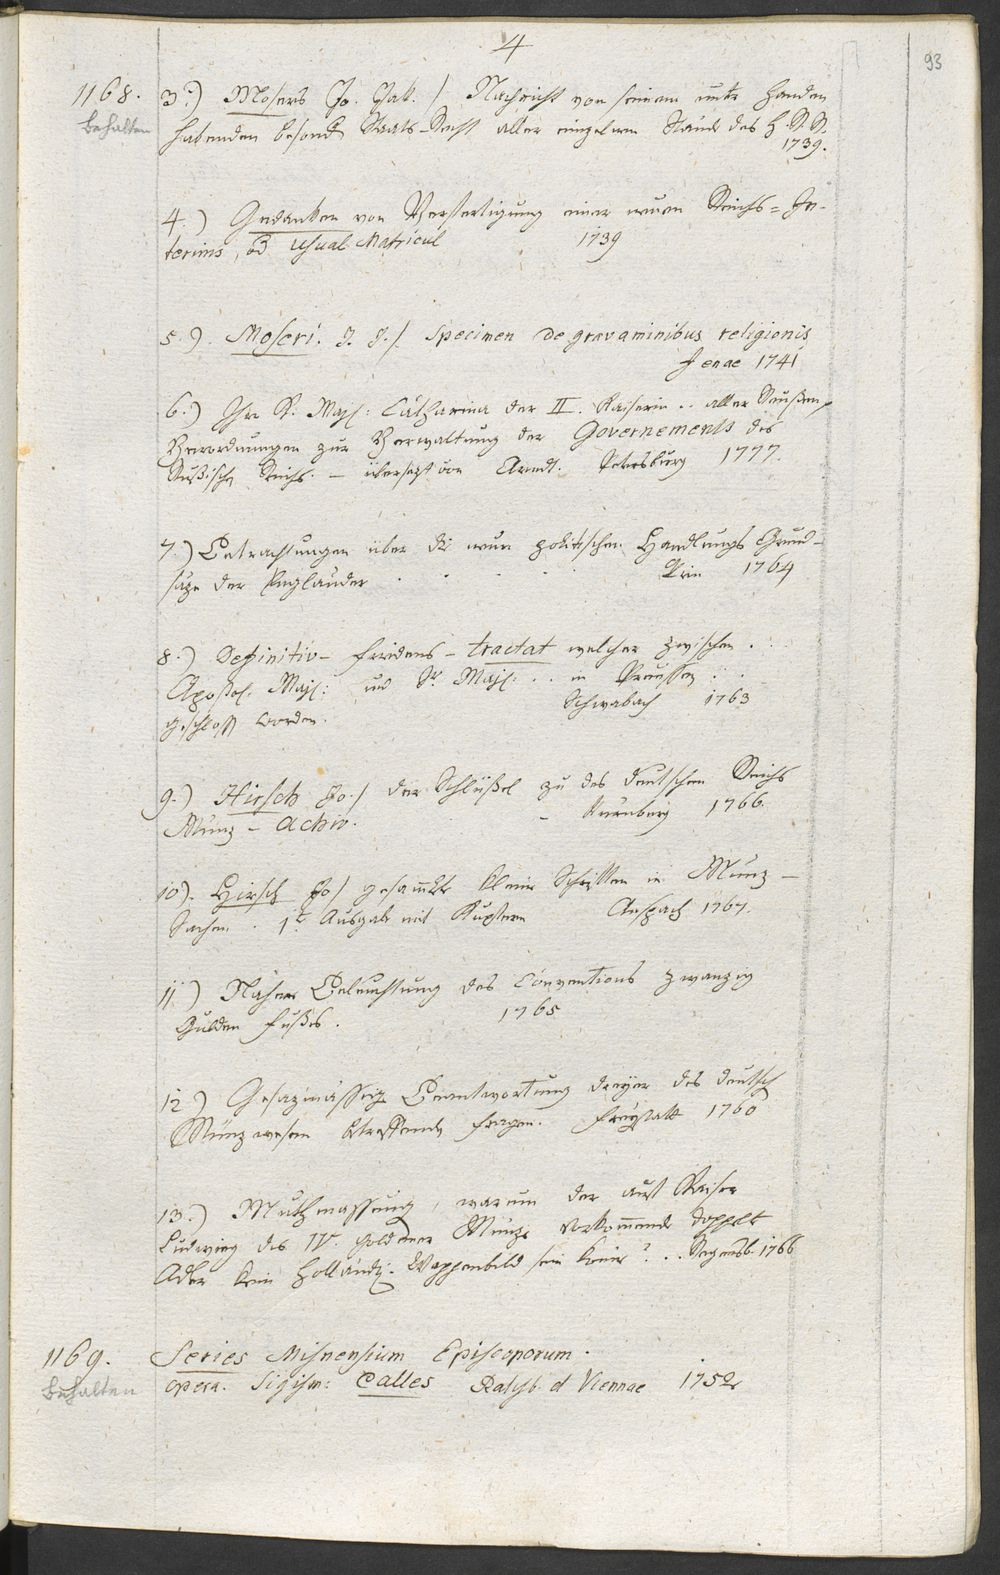 4
93
1168. 3.) Mosers Jo. Jak. / Nachricht von seinem unter Handen
behalten habenden besond. Staats-Recht aller einzelnen Stände des H. R. R.
1739.
4.) Gedanken von Verfertigung einer neuen Reichs=In-
terims, od Usual Matricul 1739
5.) Moseri. J. J. / Specimen de gravaminibus religionis
Jenae 1741
6.) Ihr K. Maj: Catharina der II. Kaiserin .. aller Reußen,
Verordnungen zur Verwaltung der Governements des
Rußisch Reichs. – übersezt von Arndt. Petersburg 1777.
7.) Betrachtungen über die neuen politischen Handlungs Grund-
säze der Engländer . . . . . 1764
8.) Definitiv- Fridens- tractat welcher zwischen . . .
Apostol. Maj: und Sr. Maj: .. in Preussen . .
geschloss worden. Schwabach 1763
9.) Hirsch Jo. / der Schlüßel zu des deutschen Reichs
Münz - Achiv. - Nurnberg 1766.
10). Hirsch Jo / gesammelte kleine Schriften in Münz-
Sachen. 1t Ausgab mit Kupfern Anspach 1767.
11) Nähere Beleuchtung des Conventions zwanzig
Gulden Fußes. 1765
12.) Gesazmässige Beantwortung dreyer des deutsch
Münzwesen betreffende Fragen. Freystatt 1760
13.) Muthmassung, warum der auf Kaiser
Ludwig des IV. goldener Münze vorkommende doppelte
Adler kein Holländ. Wappenbild sein könne? .. Regensb. 1766
1169. Series Misnensium Episcoporum.
behalten opera. Sigism: Calles Ratisb. et Viennae 1752